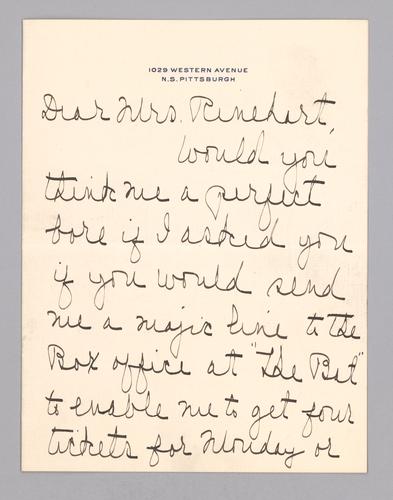 1029 WESTERN AVENUE
N.S. PITTSBURGH
Dear Mrs. Rinehart,
Would you
think me a perfect
bore if I asked you
if you would send
me a majic line to the
Box office at "The Bat"
to enable me to get four
tickets for Monday or